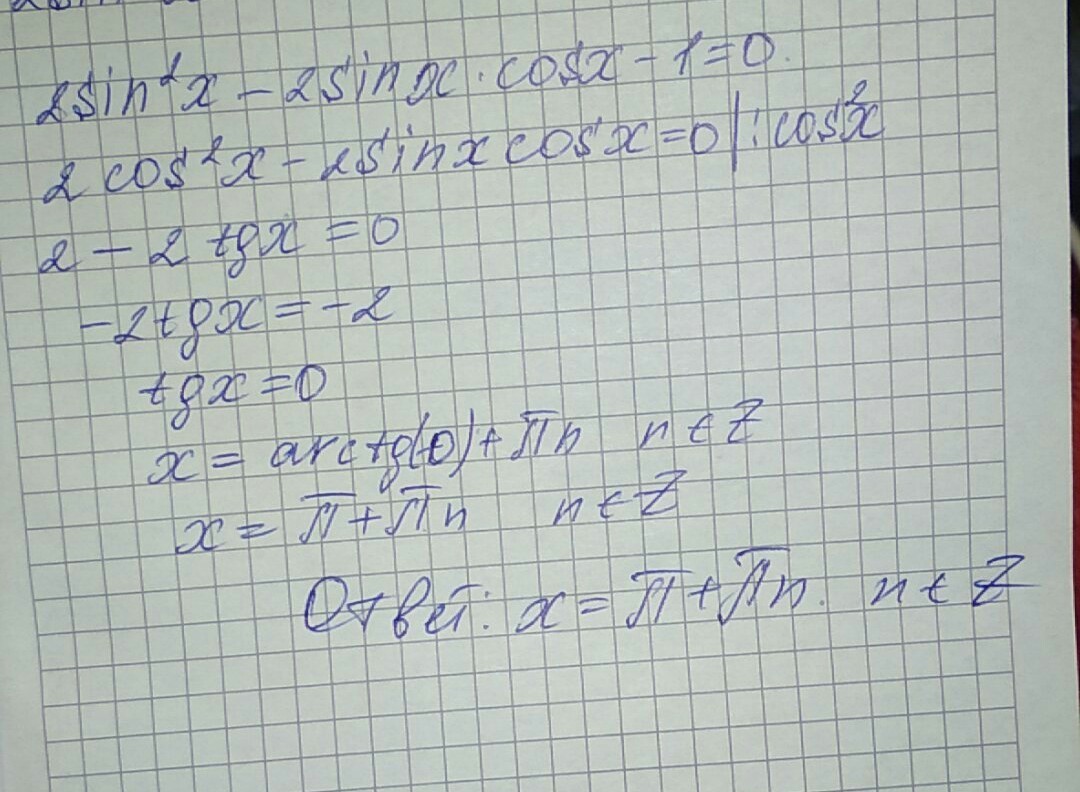 2sin²x - 2sinx · cosx - 1 = 0.
2cos²x - 2sinx cosx = 0 | : cos²x
2 - 2tgx = 0
-2tgx = -2
tgx = 0
x = arctg(0) + πn n ∈ Z
x = π + πn n ∈ Z
Ответ: x = π + πn. n ∈ Z